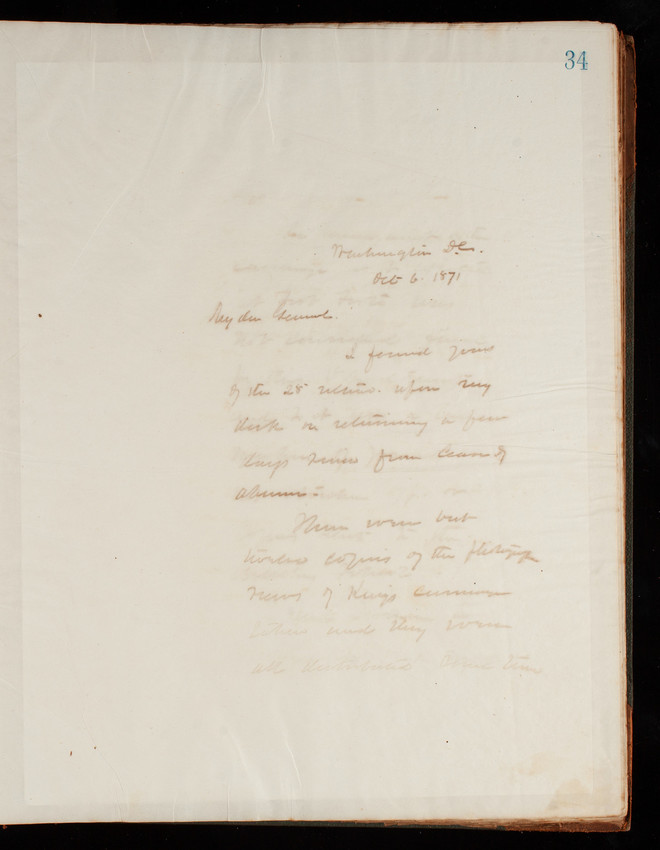 34
Washington D.C.
Oct 6. 1871
My dear General.
I found yours
of the 28 ultimo. upon my
desk on returning a few
days since from leave of
absence.
There were but
twelve copies of the photograph
views of Kings
and they were
all distributed